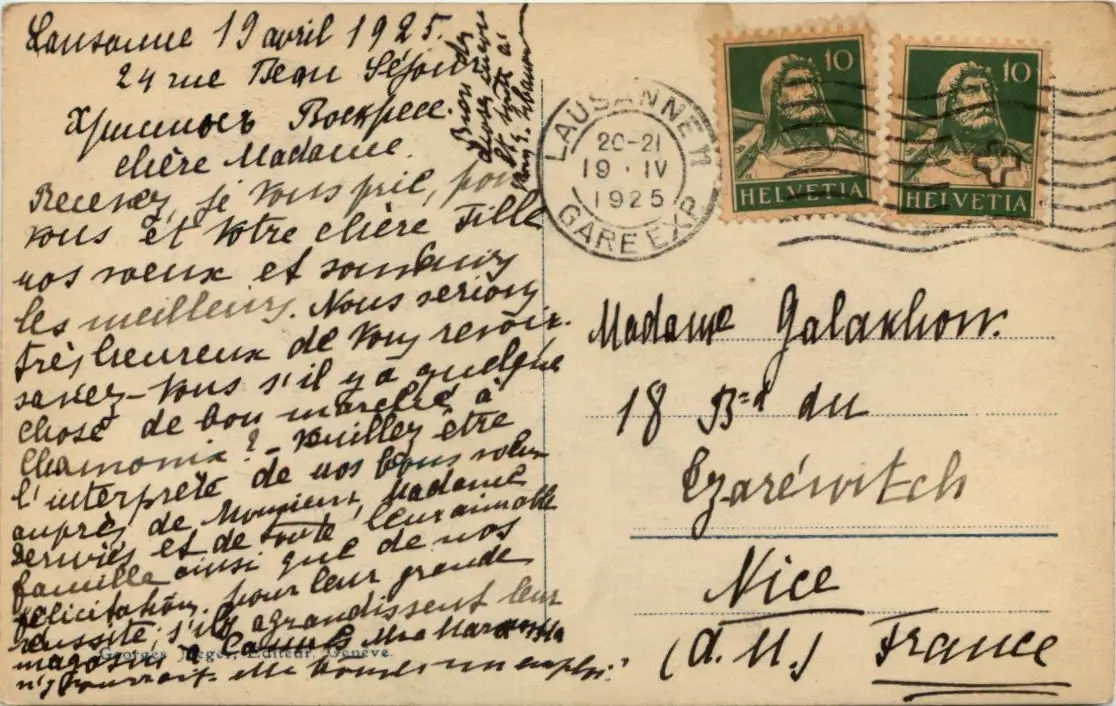 Lausanne 19 avril 1925.
24 rue Beau Séjour
Христосъ Воскресе.
chère Madame.
Recevez, je vous prie, pour
vous et Votre chère Fille
nos voeux et souhaits
les meilleurs. Nous serions
très heureux de vous revoir.
savez-vous s'il y a quelque
chose de bon marché à
Chamonix? - Veuillez être
l'interprète de nos bons voeux
auprès de Monsieur, Madame
et de toute leur aimable
famille ainsi que de nos
félicitations pour leur grande
réussite; s'ils agrandissent leur
magasin à Mme
n'y pourrait-elle un emploi?
Bien des
choses
LAUSANNE 11
20-21
19 · IV
1925
GARE EXP.
10
HELVETIA
10
HELVETIA
Madame Galakhow.
18 Bd du
Czaréwitch
Nice
(A.M.) France
Georges Jaeger, Editeur, Genève.